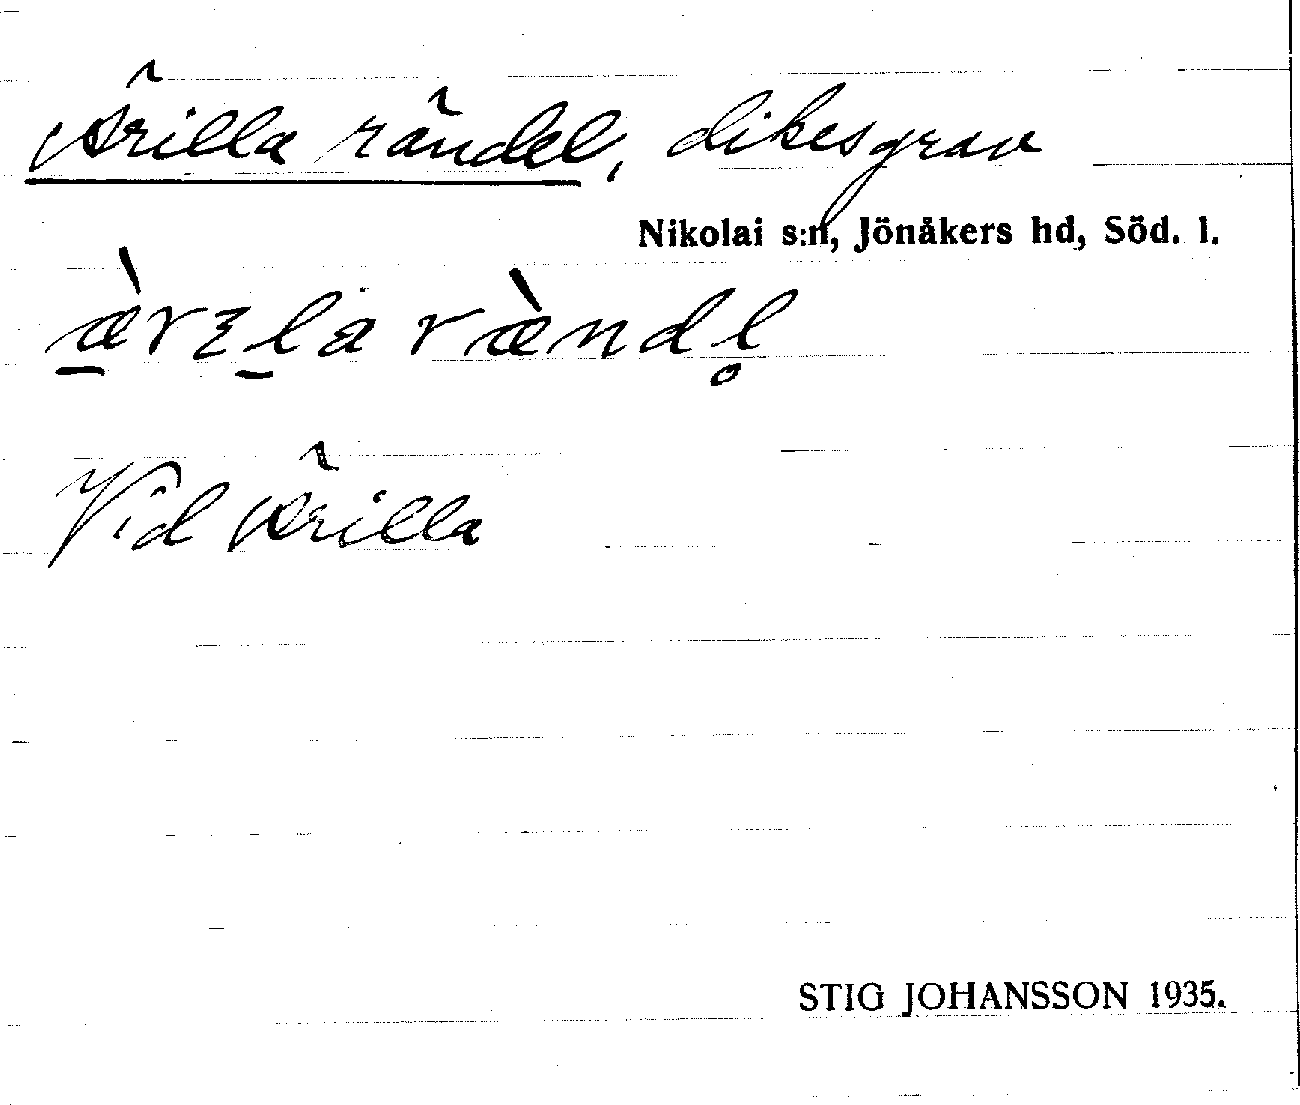 Ärilla rändel, dikesgrav
Nikolai s:n, Jönåkers hd, Söd. l.
æ̀rɩla ræ̀ndl̥
Vid Ärilla
STIG JOHANSSON 1935.